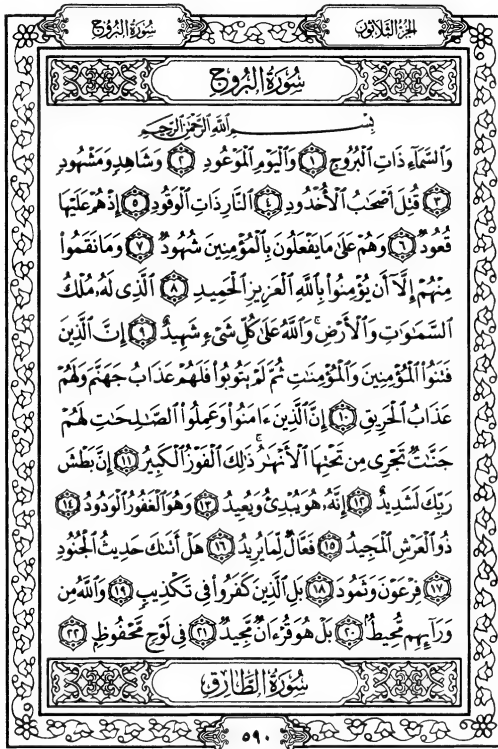 الجزء الثلاثون
سورة البروج
سُورَةُ البُرُوجِ
بِسْمِ اللَّهِ الرَّحْمَٰنِ الرَّحِيمِ
وَالسَّمَاءِ ذَاتِ الْبُرُوجِ ١ وَالْيَوْمِ الْمَوْعُودِ ٢ وَشَاهِدٍ وَمَشْهُودٍ
٣ قُتِلَ أَصْحَٰبُ الْأُخْدُودِ ٤ النَّارِ ذَاتِ الْوَقُودِ ٥ إِذْ هُمْ عَلَيْهَا
قُعُودٌ ٦ وَهُمْ عَلَىٰ مَا يَفْعَلُونَ بِالْمُؤْمِنِينَ شُهُودٌ ٧ وَمَا نَقَمُوا
مِنْهُمْ إِلَّا أَن يُؤْمِنُوا بِاللَّهِ الْعَزِيزِ الْحَمِيدِ ٨ الَّذِي لَهُۥ مُلْكُ
السَّمَٰوَٰتِ وَالْأَرْضِ ۚ وَاللَّهُ عَلَىٰ كُلِّ شَيْءٍ شَهِيدٌ ٩ إِنَّ الَّذِينَ
فَتَنُوا الْمُؤْمِنِينَ وَالْمُؤْمِنَٰتِ ثُمَّ لَمْ يَتُوبُوا فَلَهُمْ عَذَابُ جَهَنَّمَ وَلَهُمْ
عَذَابُ الْحَرِيقِ ١٠ إِنَّ الَّذِينَ ءَامَنُوا وَعَمِلُوا الصَّٰلِحَٰتِ لَهُمْ
جَنَّٰتٌ تَجْرِي مِن تَحْتِهَا الْأَنْهَٰرُ ۚ ذَٰلِكَ الْفَوْزُ الْكَبِيرُ ١١ إِنَّ بَطْشَ
رَبِّكَ لَشَدِيدٌ ١٢ إِنَّهُۥ هُوَ يُبْدِئُ وَيُعِيدُ ١٣ وَهُوَ الْغَفُورُ الْوَدُودُ ١٤
ذُو الْعَرْشِ الْمَجِيدُ ١٥ فَعَّالٌ لِّمَا يُرِيدُ ١٦ هَلْ أَتَىٰكَ حَدِيثُ الْجُنُودِ
١٧ فِرْعَوْنَ وَثَمُودَ ١٨ بَلِ الَّذِينَ كَفَرُوا فِي تَكْذِيبٍ ١٩ وَاللَّهُ مِن
وَرَائِهِم مُّحِيطٌ ٢٠ بَلْ هُوَ قُرْءَانٌ مَّجِيدٌ ٢١ فِي لَوْحٍ مَّحْفُوظٍ ٢٢
سُورَةُ الطَّارِقِ
٥٩٠